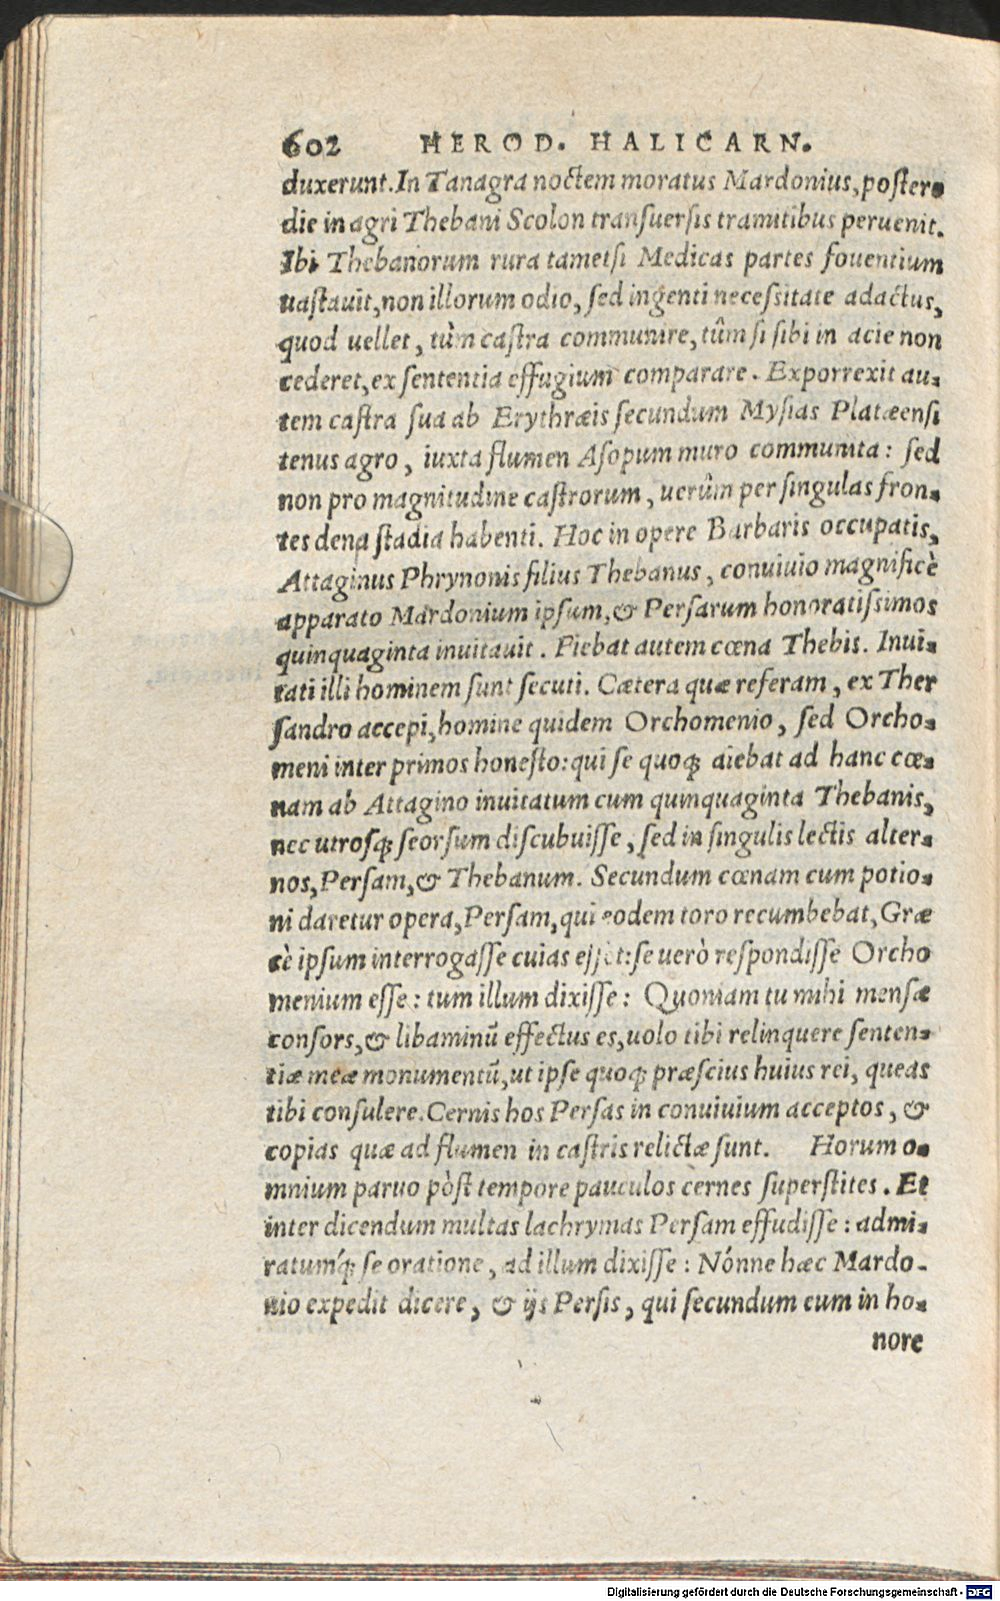 602 HEROD. HALICARN.
duxerunt. In Tanagra noctem moratus Mardonius, postero
die in agri Thebani Scolon transuersis tramitibus peruenit.
Ibi Thebanorum rura tametsi Medicas partes fouentium
uastauit, non illorum odio, sed ingenti necessitate adactus,
quod uellet, tùm castra communire, tûm si sibi in acie non
cederet, ex sententia effugium comparare. Exporrexit au-
tem castra sua ab Erythræis secundum Mysias Platæensi
tenus agro, iuxta flumen Asopum muro communita: sed
non pro magnitudine castrorum, uerûm per singulas fron-
tes dena stadia habenti. Hoc in opere Barbaris occupatis,
Attaginus Phrynonis filius Thebanus, conuiuio magnificè
apparato Mardonium ipsum, & Persarum honoratissimos
quinquaginta inuitauit. Fiebat autem cœna Thebis. Inui-
tati illi hominem sunt secuti. Cætera quæ referam, ex Ther
sandro accepi, homine quidem Orchomenio, sed Orcho-
meni inter primos honesto: qui se quoq; aiebat ad hanc cœ-
nam ab Attagino inuitatum cum quinquaginta Thebanis,
nec utrosq; seorsum discubuisse, sed in singulis lectis alter-
nos, Persam, & Thebanum. Secundum cœnam cum potio-
ni daretur opera, Persam, qui eodem toro recumbebat, Græ
cè ipsum interrogasse cuias esset: se uerò respondisse Orcho
menium esse: tum illum dixisse: Quoniam tu mihi mensæ
consors, & libaminū effectus es, uolo tibi relinquere senten-
tiæ meæ monumentū, ut ipse quoq; præscius huius rei, queas
tibi consulere. Cernis hos Persas in conuiuium acceptos, &
copias quæ ad flumen in castris relictæ sunt. Horum o-
mnium paruo pòst tempore pauculos cernes superstites. Et
inter dicendum multas lachrymas Persam effudisse: admi-
ratumq́; se oratione, ad illum dixisse: Nónne hæc Mardo-
nio expedit dicere, & ijs Persis, qui secundum eum in ho-
nore
Digitalisierung gefördert durch die Deutsche Forschungsgemeinschaft - DFG